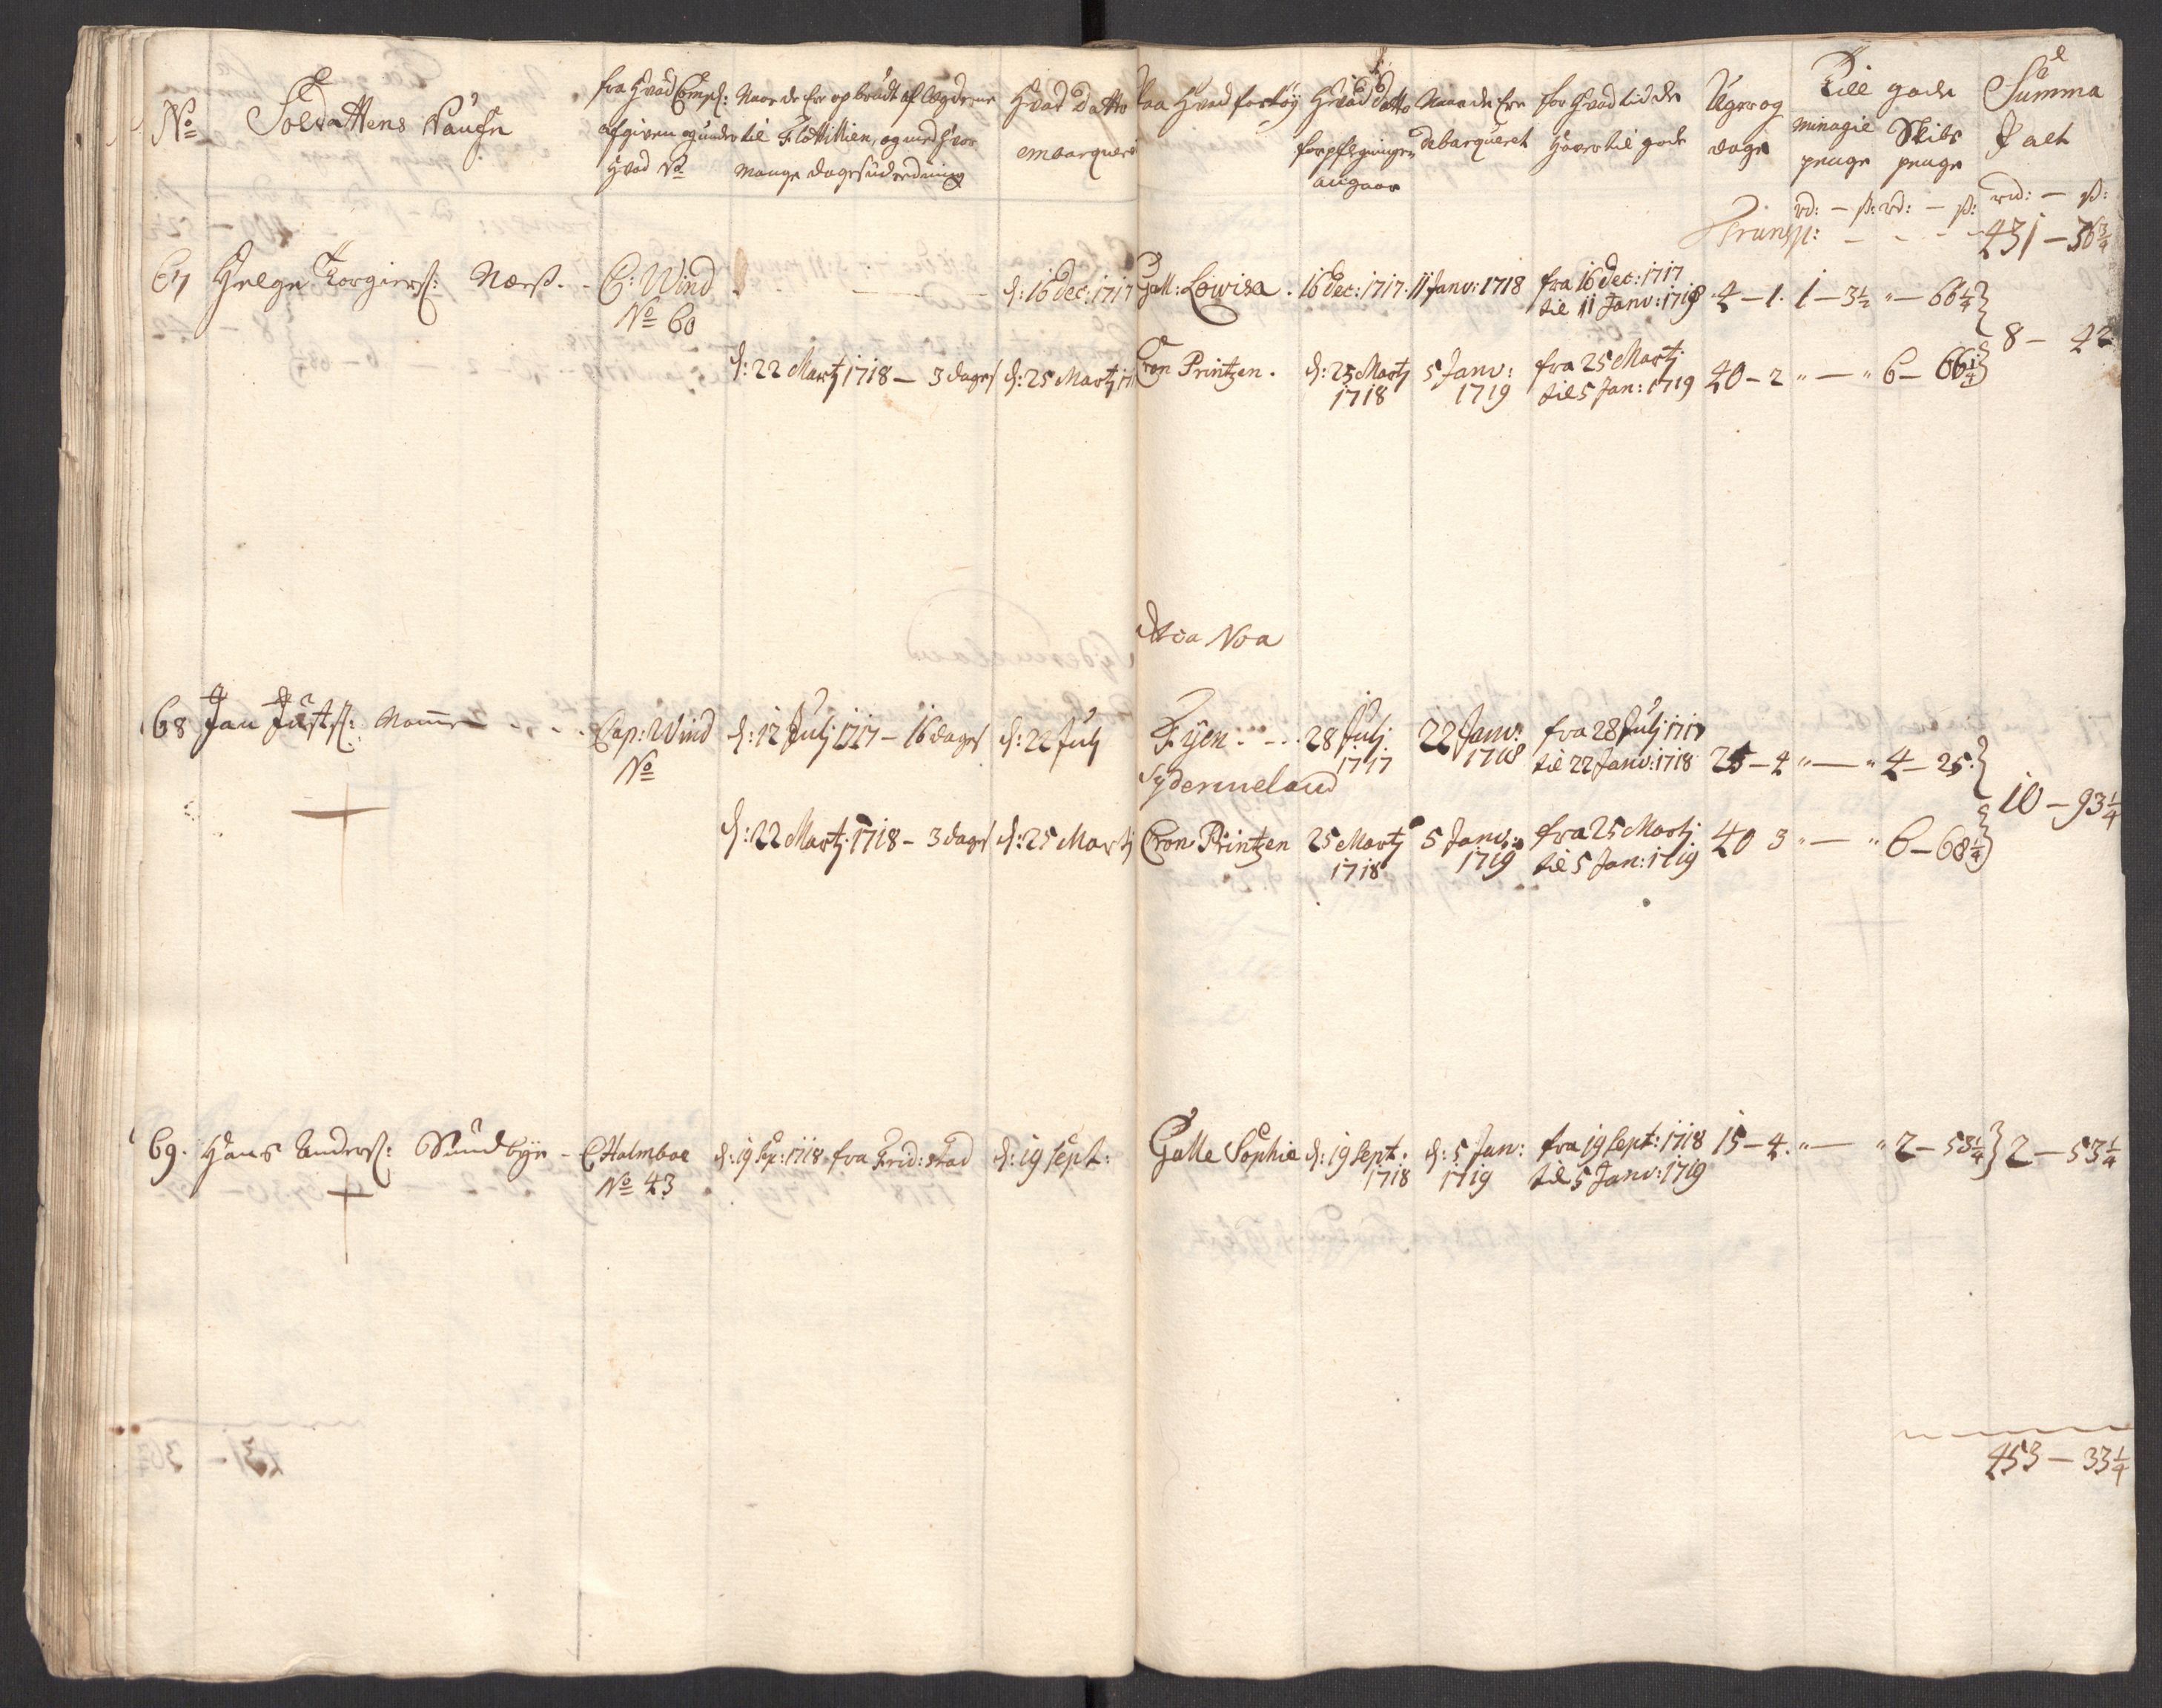 No
Soldattens Naufn
fra hvad Comp: afgiven og under hvad No
Naar de Ere opbrudt af Lægderne til Flottillien, og med hvor mange dages udredning
Hvad Datto embarqueret
Paa hvad fartøy
Hvad Datto forpflegningen angaar
Naar de Ere debarqueret
for hvad tid de haver til gode
Uger og dage
Till gode
minagie penge
Skibs penge
Summa I alt
rd: – ß: rd: – ß: rd: – ß:
Transp: - - - - 431 – 36 3/4
67 Helge Torgiers: Næss. - C: Wind No 60 - d: 16 dec: 1717 Gall: Lowisa. 16 dec: 1717. 11 Janv: 1718 fra 16 dec: 1717 til 11 Janv: 1718 4 – 1. 1 – 3 1/2 " – 66 1/4 }
8 – 42
d: 22 Martj 1718 – 3 dages d: 25 Martj 17 Cron Printzen. d: 25 Martj 1718 5 Janv: 1719 fra 25 Martj til 5 Jan: 1719 40 – 2 " – " 6 – 66 1/4 }
Arca Noa
68 Jan Justs: - - . Cap: Wind No d: 12 Julj 1717 – 16 dages d: 22 Julj Fyen. - - . 28 Julj 1717 22 Janv: 1718 fra 28 Julj 1717 til 22 Janv: 1718 25 – 4 " – " 4 – 25 }
Sydermeland
10 – 93 1/4
d: 22 Martj 1718 – 3 dages d: 25 Martj Cron Printzen 25 Martj 1718 5 Janv: 1719 fra 25 Martj til 5 Jan: 1719 40 3 " – " 6 – 68 1/4 }
69. Hans Anders: Sundbye - C Holmboe No 43 d: 19 Sep: 1718 fra Frid: stad d: 19 sept: Galle Sophie d: 19 Sept. 1718 d: 5 Jan: 1719 fra 19 Sept: 1718 til 5 Janv: 1719 15 – 4. " – " 2 – 53 1/4 } 2 – 53 1/4
453 – 33 1/4